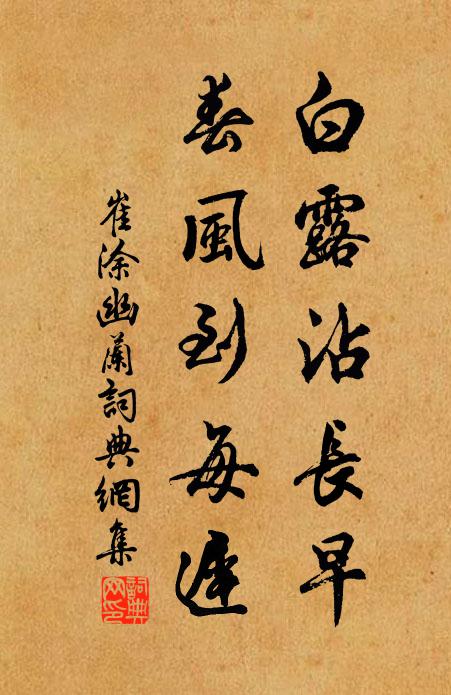 白露沾長早
春風到每遲
崔涂幽蘭詞典網集
詞典
網印